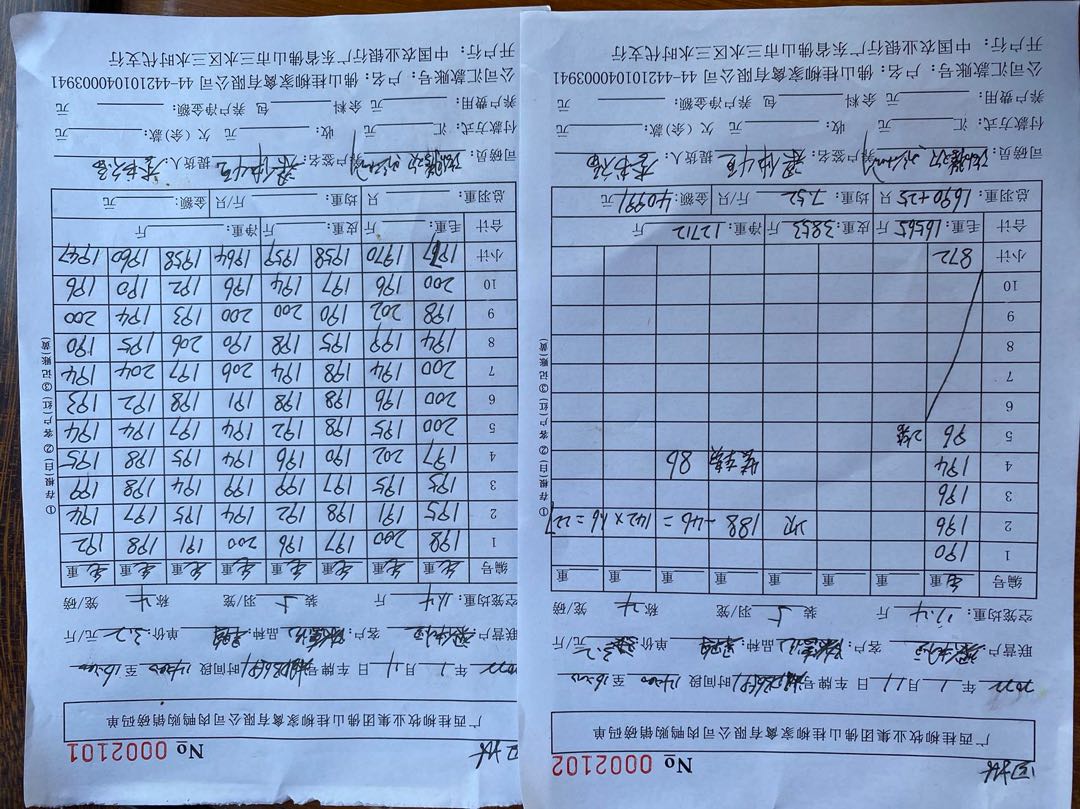 № 0002102
广西桂柳牧业集团佛山桂柳家禽有限公司肉鸭购销磅码单
年 1 月 11 日 车牌号码 时间段 14:00 至 16:00
联营户: 客户: 品种: 单价: 3.2 元/斤
空笼均重: 11.4 斤 装 5 羽/笼 称 4 笼/磅
编号 毛重 重 重 重 重 重 重 重
1 190
2 196 次 188-46=142×1.6=227
3 196
4 194 装车鸭 86
5 96 2笼
6
7
8
9
10
小计 872
合计 毛重: 16565 斤 皮重: 3853 斤 净重: 12712 斤
总羽重: 1690+25 只 均重: 7.52 只/斤 金额: 40991 元
司磅员: 养户签名: 提货人:
付款方式: 汇 元 收: 元 欠(余)款: 元
养户费用: 元 余料 包 养户净金额: 元
公司汇款账号: 户名: 佛山桂柳家禽有限公司 44-442101040003941
开户行: 中国农业银行广东省佛山市三水区三水时代支行
①存根(白)②客户(红)③记账(黄)
№ 0002101
广西桂柳牧业集团佛山桂柳家禽有限公司肉鸭购销磅码单
年 1 月 11 日 车牌号码 时间段 14:00 至 16:00
联营户: 客户: 品种: 单价: 3.2 元/斤
空笼均重: 11.4 斤 装 5 羽/笼 称 4 笼/磅
编号 毛重 毛重 毛重 毛重 毛重 毛重 毛重 毛重
1 198 200 197 196 200 191 198 192
2 195 191 198 192 194 195 197 194
3 195 195 197 199 199 194 198 199
4 197 202 190 196 194 195 198 195
5 200 195 198 192 194 197 194 194
6 200 196 198 198 191 198 192 193
7 200 194 198 194 206 197 204 194
8 194 199 195 198 190 206 195 190
9 198 202 190 200 200 193 194 200
10 200 196 197 194 196 192 190 196
小计 1977 1970 1958 1959 1964 1958 1960 1947
合计 毛重: 斤 皮重: 斤 净重: 斤
总羽重: 只 均重: 只/斤 金额: 元
司磅员: 养户签名: 提货人:
付款方式: 汇 元 收: 元 欠(余)款: 元
养户费用: 元 余料 包 养户净金额: 元
公司汇款账号: 户名: 佛山桂柳家禽有限公司 44-442101040003941
开户行: 中国农业银行广东省佛山市三水区三水时代支行
①存根(白)②客户(红)③记账(黄)